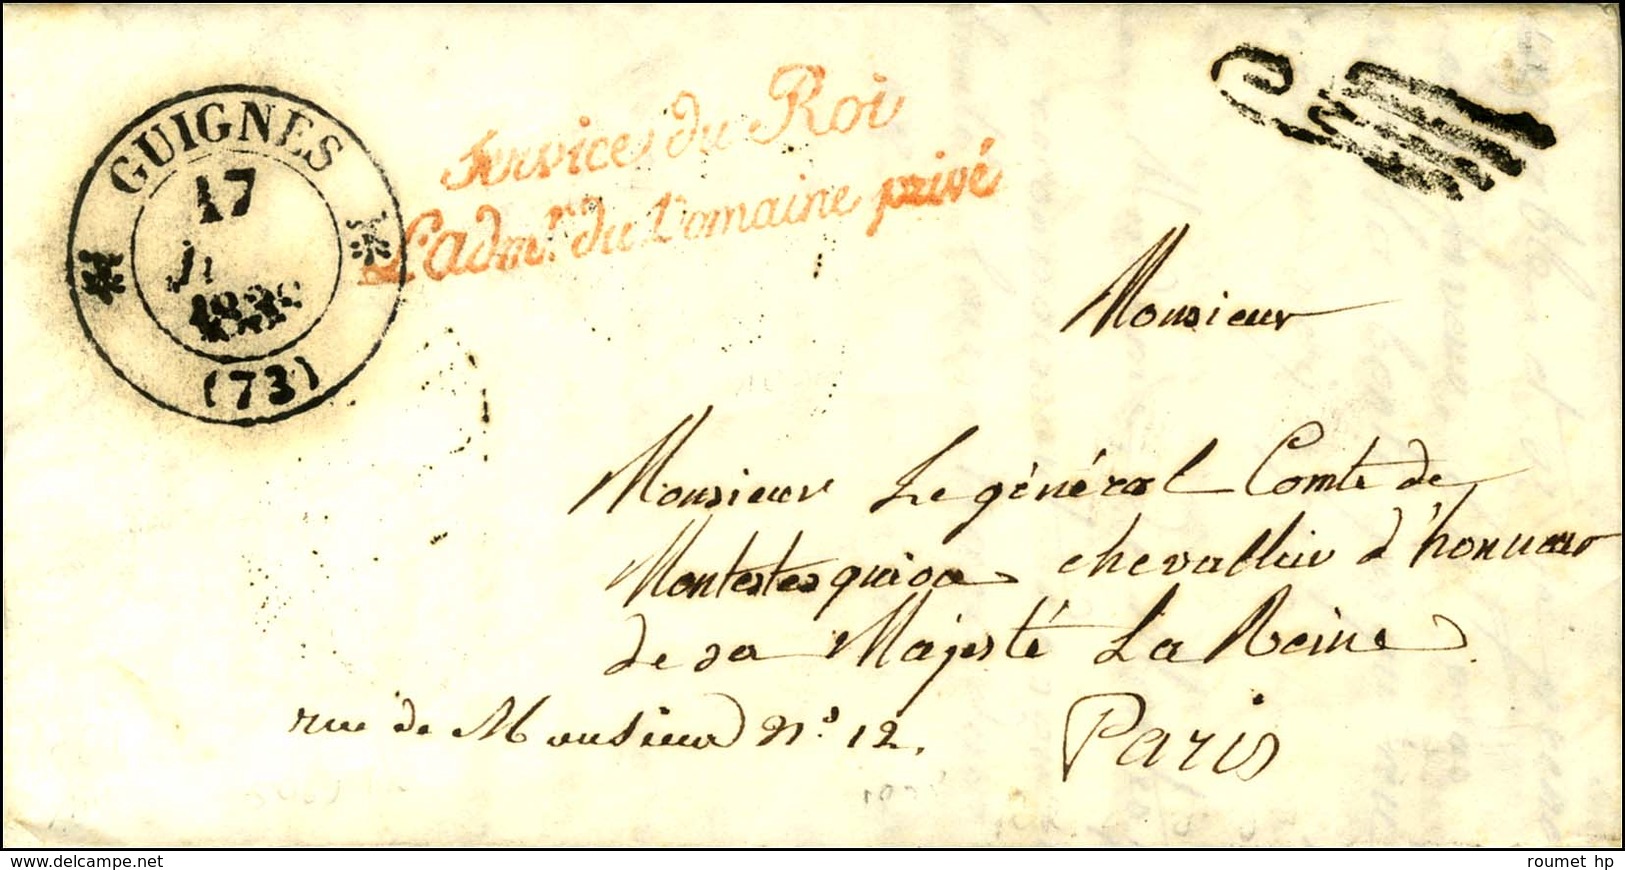 GUIGNES
17
(73)
Service du Roi
L'adm.on du Domaine privé
Monsieur
Monsieur Le général Comte de
Montestesquiou chevallier d'honneur
de sa Majesté La Reine
rue de Monsieur N.° 12.
Paris
roumet hp